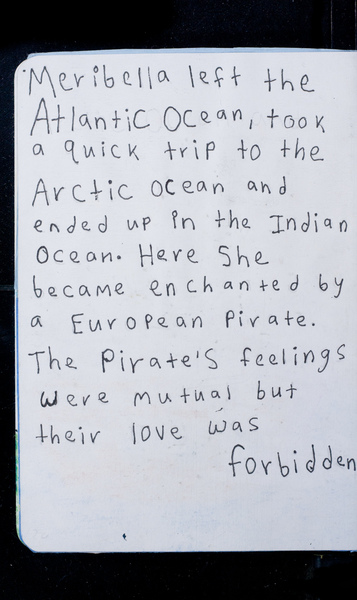 Meribella left the
Atlantic Ocean, took
a quick trip to the
Arctic ocean and
ended up in the Indian
Ocean. Here She
became enchanted by
a European Pirate.
The Pirate's feelings
were mutual but
their love was
forbidden